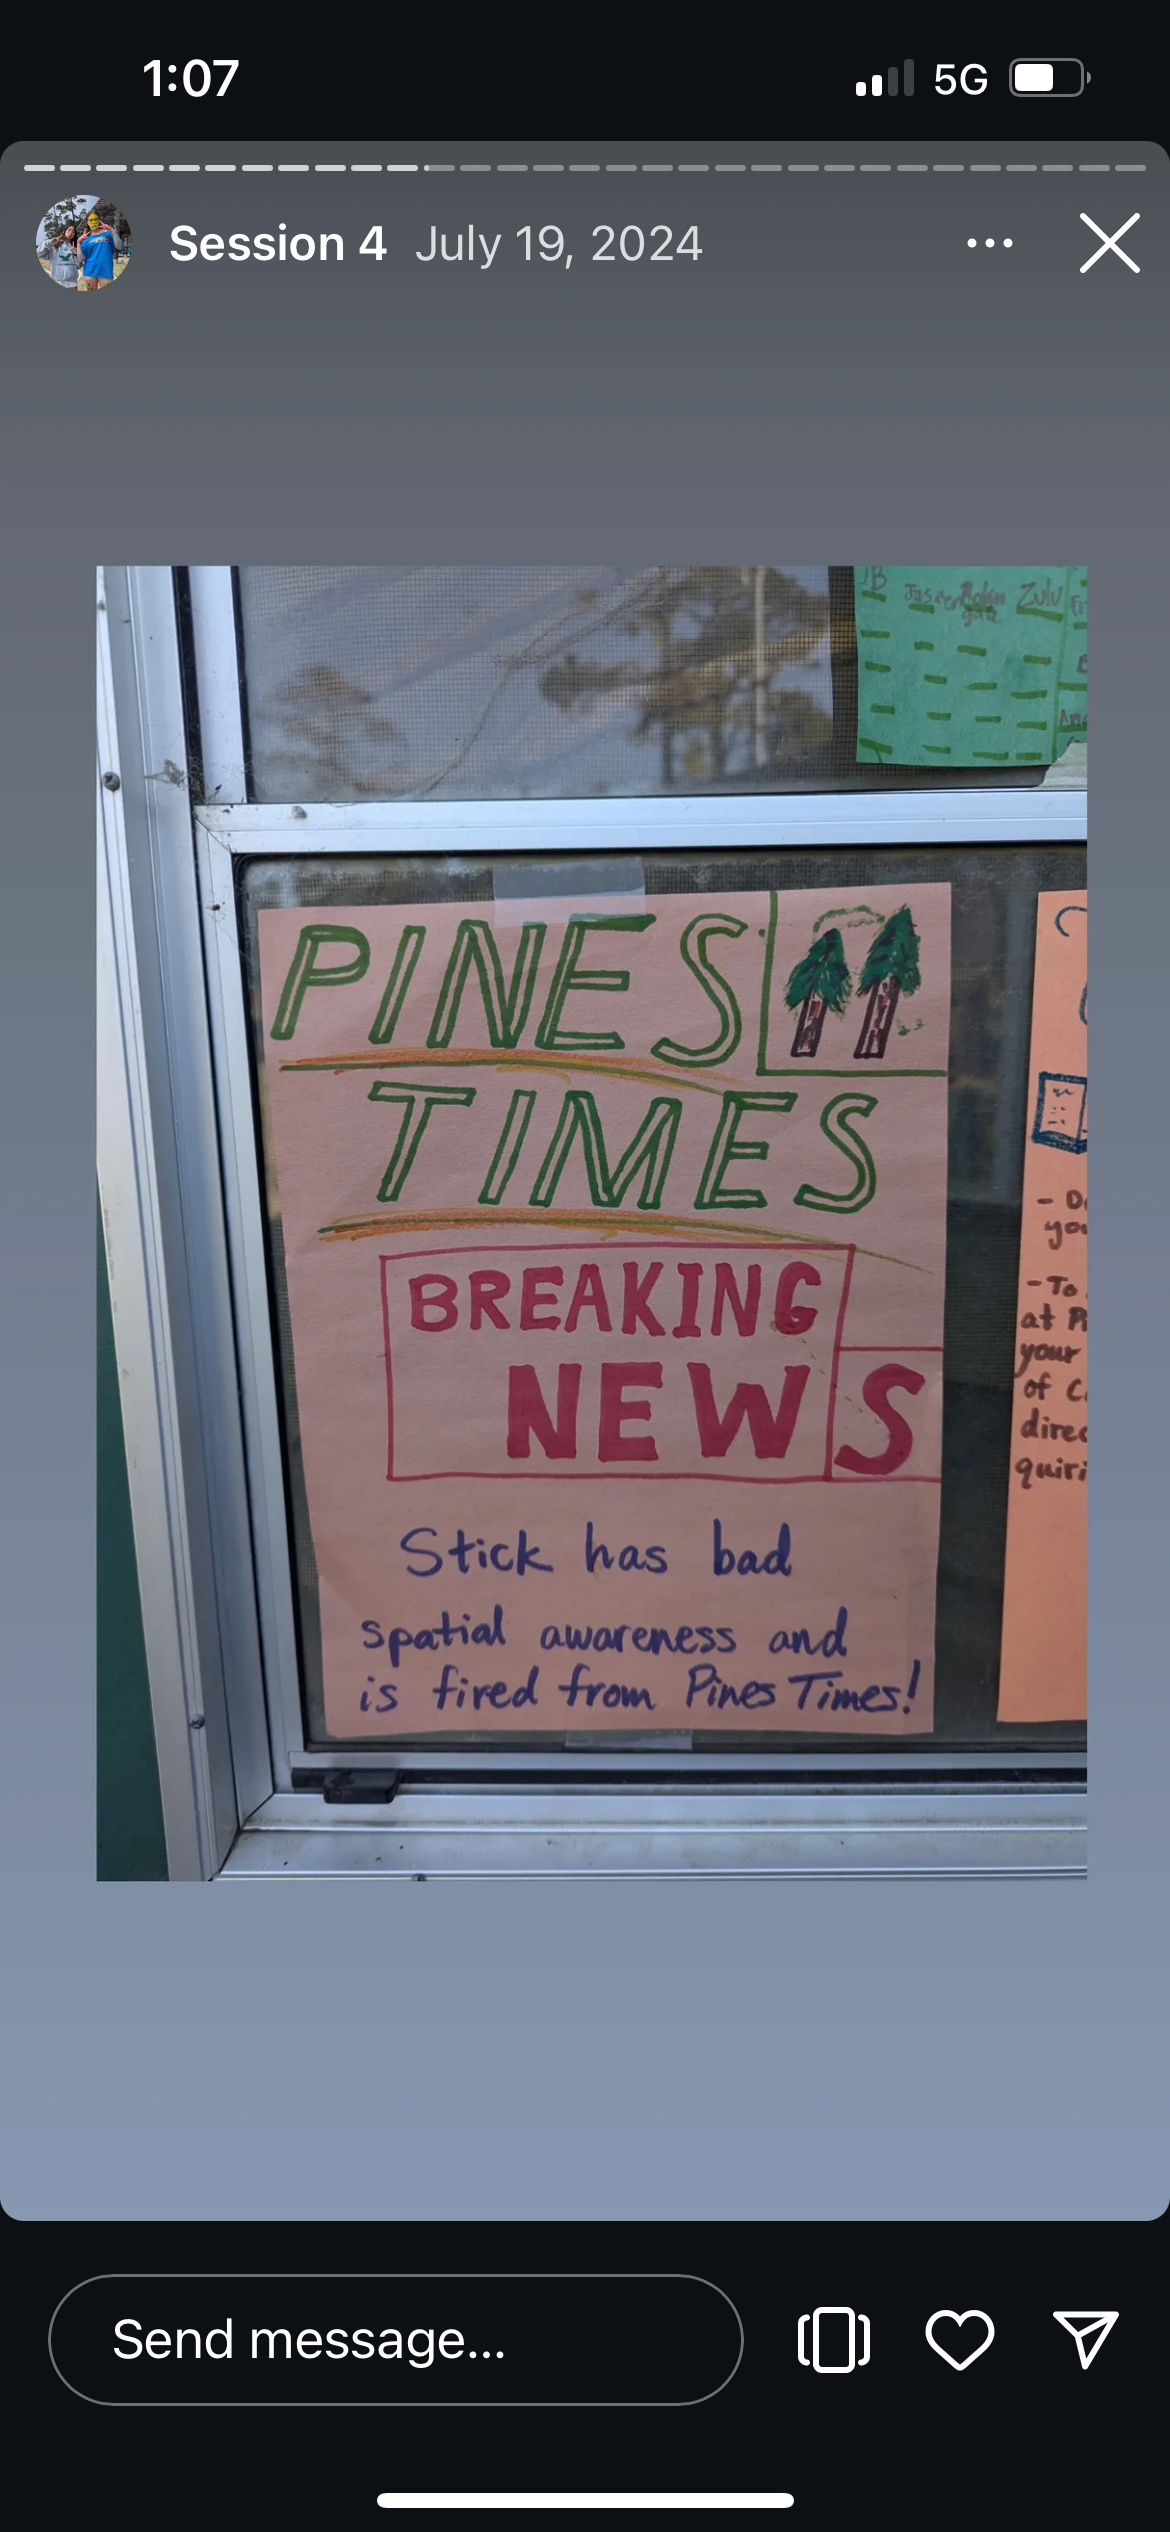 1:07 5G
Session 4 July 19, 2024
JB Zulu
PINES
TIMES
BREAKING
NEWS
Stick has bad
spatial awareness and
is fired from Pines Times!
- To
at
your
of
Send message...